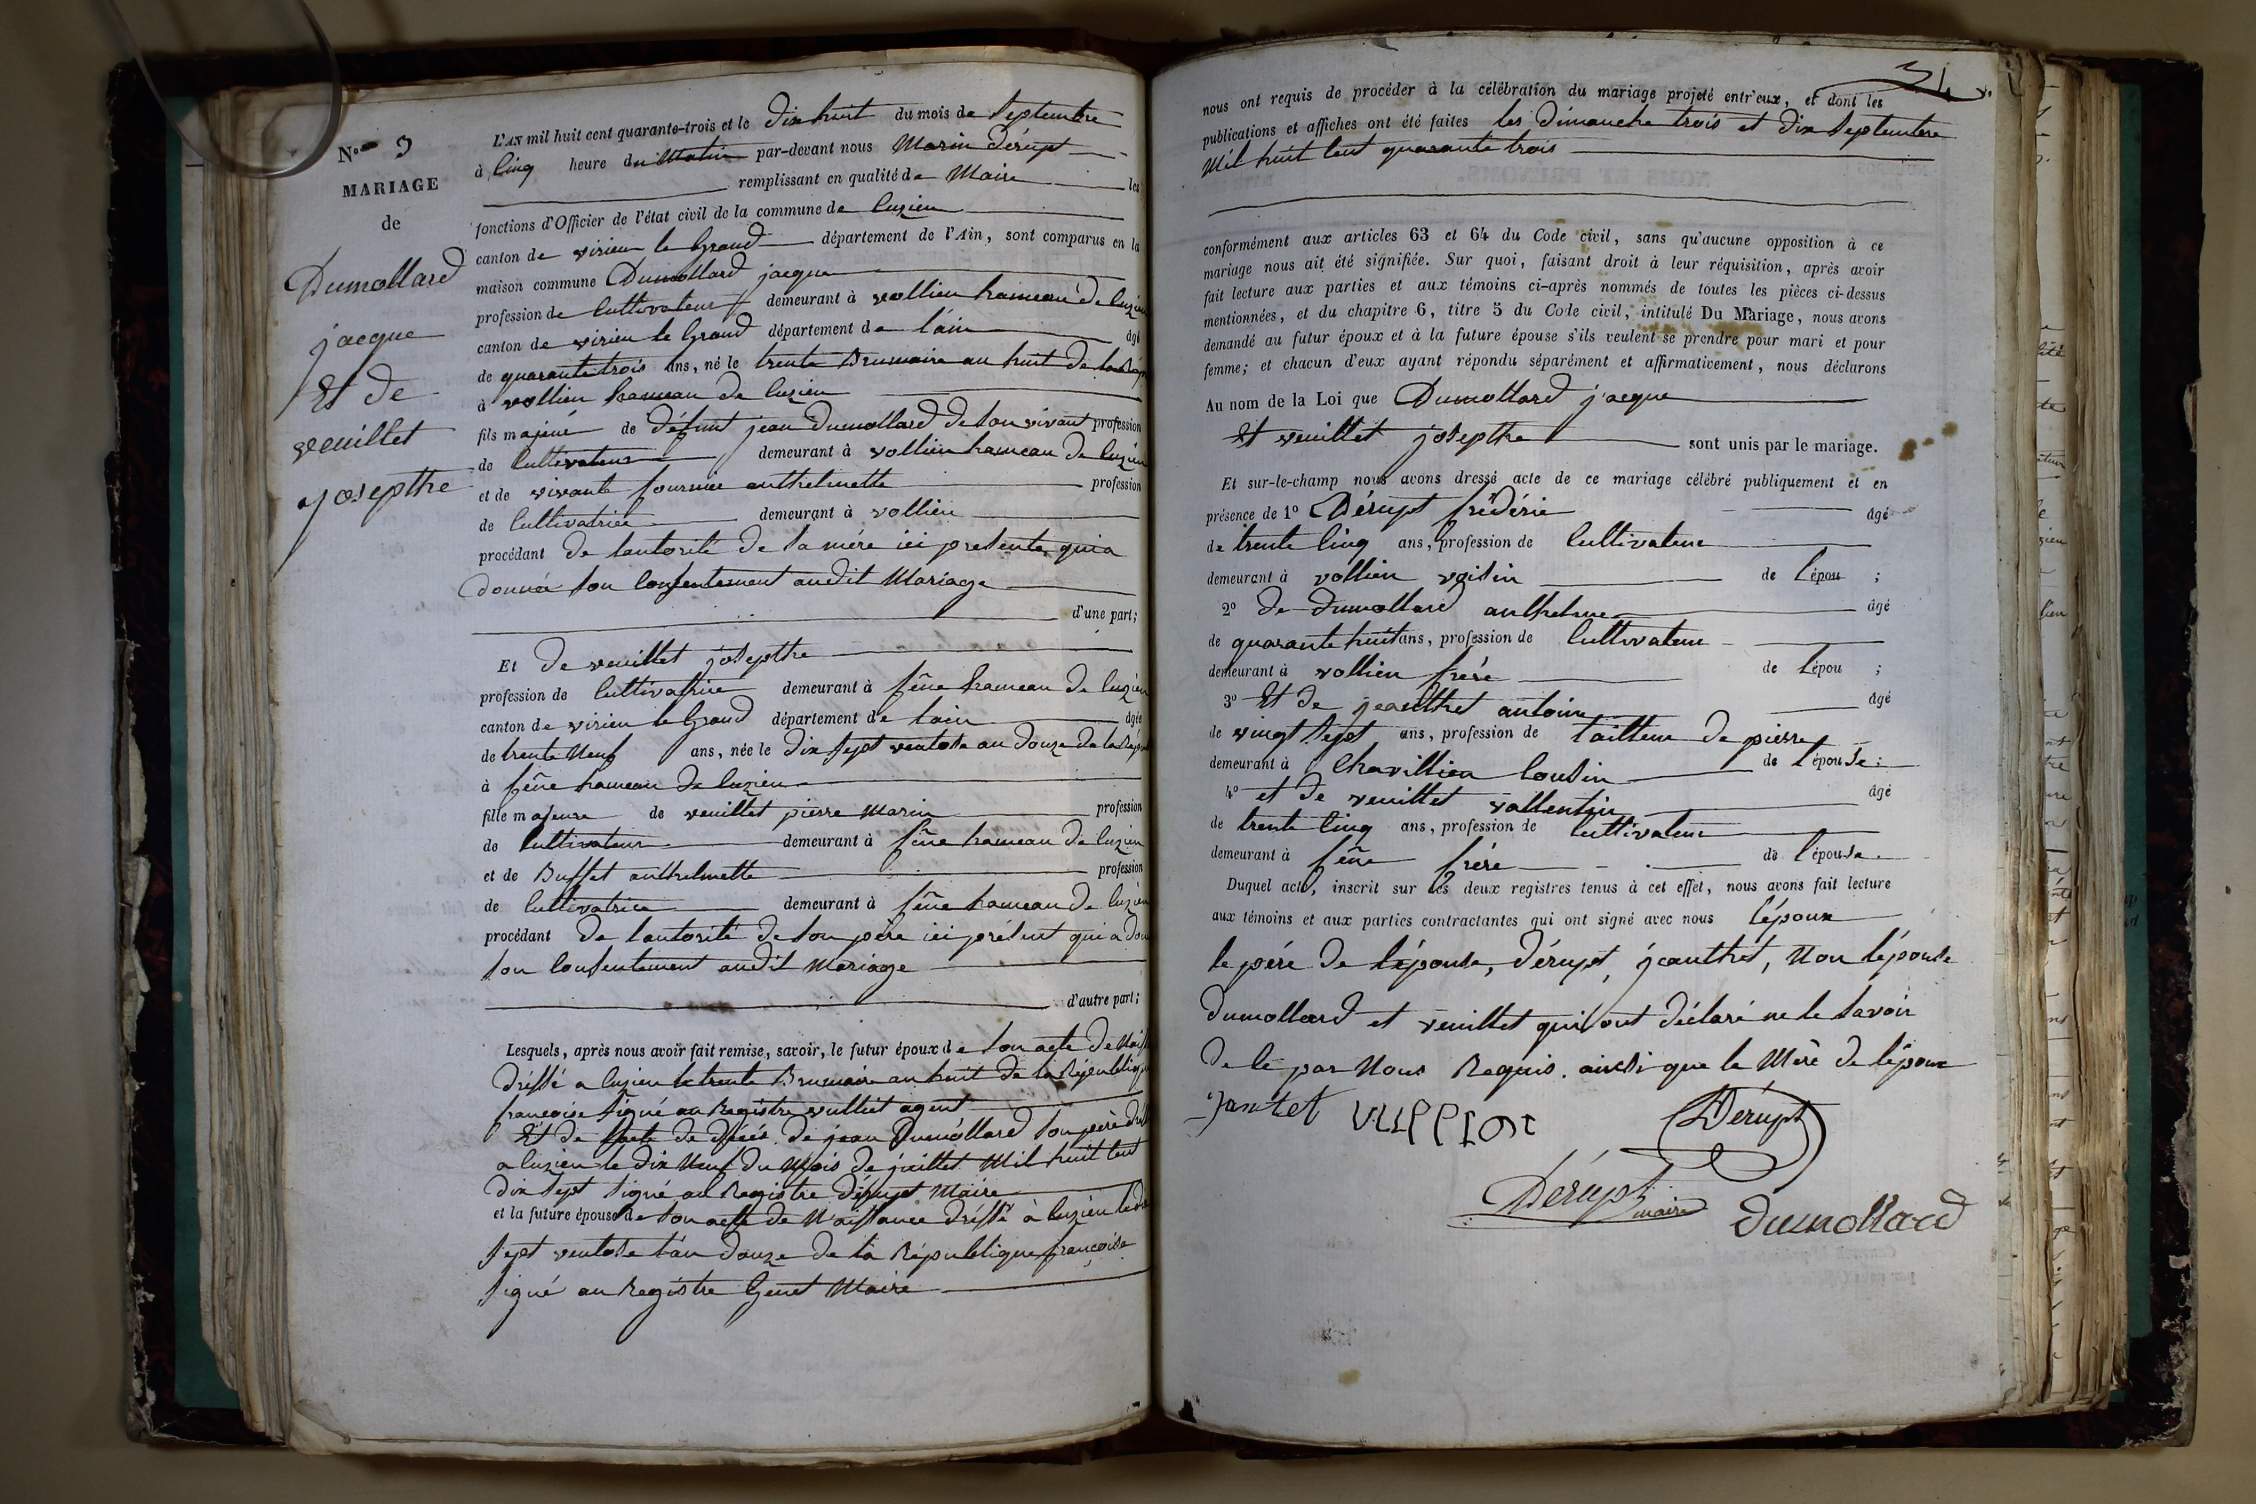 N° 9
MARIAGE
de
Dumollard
jacque
Et de
veuillet
josepthe
L'AN mil huit cent quarante-trois et le dix huit du mois de Septembre
à Cinq heure du Matin par-devant nous Marin Dérupt
remplissant en qualité de Maire les
fonctions d'Officier de l'état civil de la commune de luzieu
canton de virieu le Grand département de l'Ain, sont comparus en la
maison commune Dumollard jacque
profession de Cultivateur demeurant à vollien hameau de luzieu
canton de virieu le Grand département de l'ain âgé
de quarante trois ans, né le trente Brumaire an huit de la Rép
à vollien hameau de luzieu
fils majeur de défunt jean Dumollard de son vivant profession
de Cultivateur demeurant à vollien hameau de luzieu
et de vivante fournier anthelmette profession
de Cultivatrice demeurant à vollien
procédant de lautorité de sa mére ici presente qui a
donnée son Consentement audit Mariage
d'une part;
Et de veuillet josepthe
profession de Cultivatrice demeurant à hameau de luzieu
canton de virieu le Grand département de lain âgée
de trente Neuf ans, née le dix Sept ventose an douze de la Répu
à hameau de luzieu
fille majeure de veuillet pierre Marin profession
de Cultivateur demeurant à hameau de luzieu
et de Buffet anthelmette profession
de Cultivatrice demeurant à hameau de luzieu
procédant de lautorité de son père ici présent qui a don
son Consentement audit Mariage
d'autre part;
Lesquels, après nous avoir fait remise, savoir, le futur époux de son acte de Naiss
dréssé a luzieu le trente Brumaire an huit de la République
françoise Signé au Registre vulliet agent
Et de lacte de décés de jean Dumollard son père dré
a luzieu le dix Neuf du Mois de juillet Mil huit Cent
dix Sept Signé au Registre Dérupt Maire
et la future épouse de son acte de Naissance dréssé à luzieu le dix
Sept ventose l'an douze de la République françoise
Signé au Registre Genet Maire
nous ont requis de procéder à la célébration du mariage projeté entr'eux, et dont les
publications et affiches ont été faites les dimanche trois et dix Septembre
Mil huit Cent quarante trois
conformément aux articles 63 et 64 du Code civil, sans qu'aucune opposition à ce
mariage nous ait été signifiée. Sur quoi, faisant droit à leur réquisition, après avoir
fait lecture aux parties et aux témoins ci-après nommés de toutes les pièces ci-dessus
mentionnées, et du chapitre 6, titre 5 du Code civil, intitulé Du Mariage, nous avons
demandé au futur époux et à la future épouse s'ils veulent se prendre pour mari et pour
femme; et chacun d'eux ayant répondu séparément et affirmativement, nous déclarons
Au nom de la Loi que Dumollard jacque
Et veuillet josepthe sont unis par le mariage.
Et sur-le-champ nous avons dressé acte de ce mariage célébré publiquement et en
présence de 1° Dérupt frédéric âgé
de trente Cinq ans, profession de Cultivateur
demeurant à vollien voisin de l'épou ;
2° de dumollard anthelme âgé
de quarante huit ans, profession de Cultivateur
demeurant à vollien frére de l'épou ;
3° Et de jeanthet antoine âgé
de vingt Sept ans, profession de tailleur de pierre
demeurant à Chavillieu Cousin de l'épouse;
4° et de veuillet vallentin âgé
de trente Cinq ans, profession de Cultivateur
demeurant à frére de l'épouse.
Duquel acte, inscrit sur les deux registres tenus à cet effet, nous avons fait lecture
aux témoins et aux parties contractantes qui ont signé avec nous l'époux
le pére de l'épouse, dérupt, jeanthet, Non l'épouse
Dumollard et veuillet qui ont déclaré ne le Savoir
de ce par Nous Requis. ainssi que la Mére de l'époux
Jantet
Dérupt
Dérupt maire
Dumollard